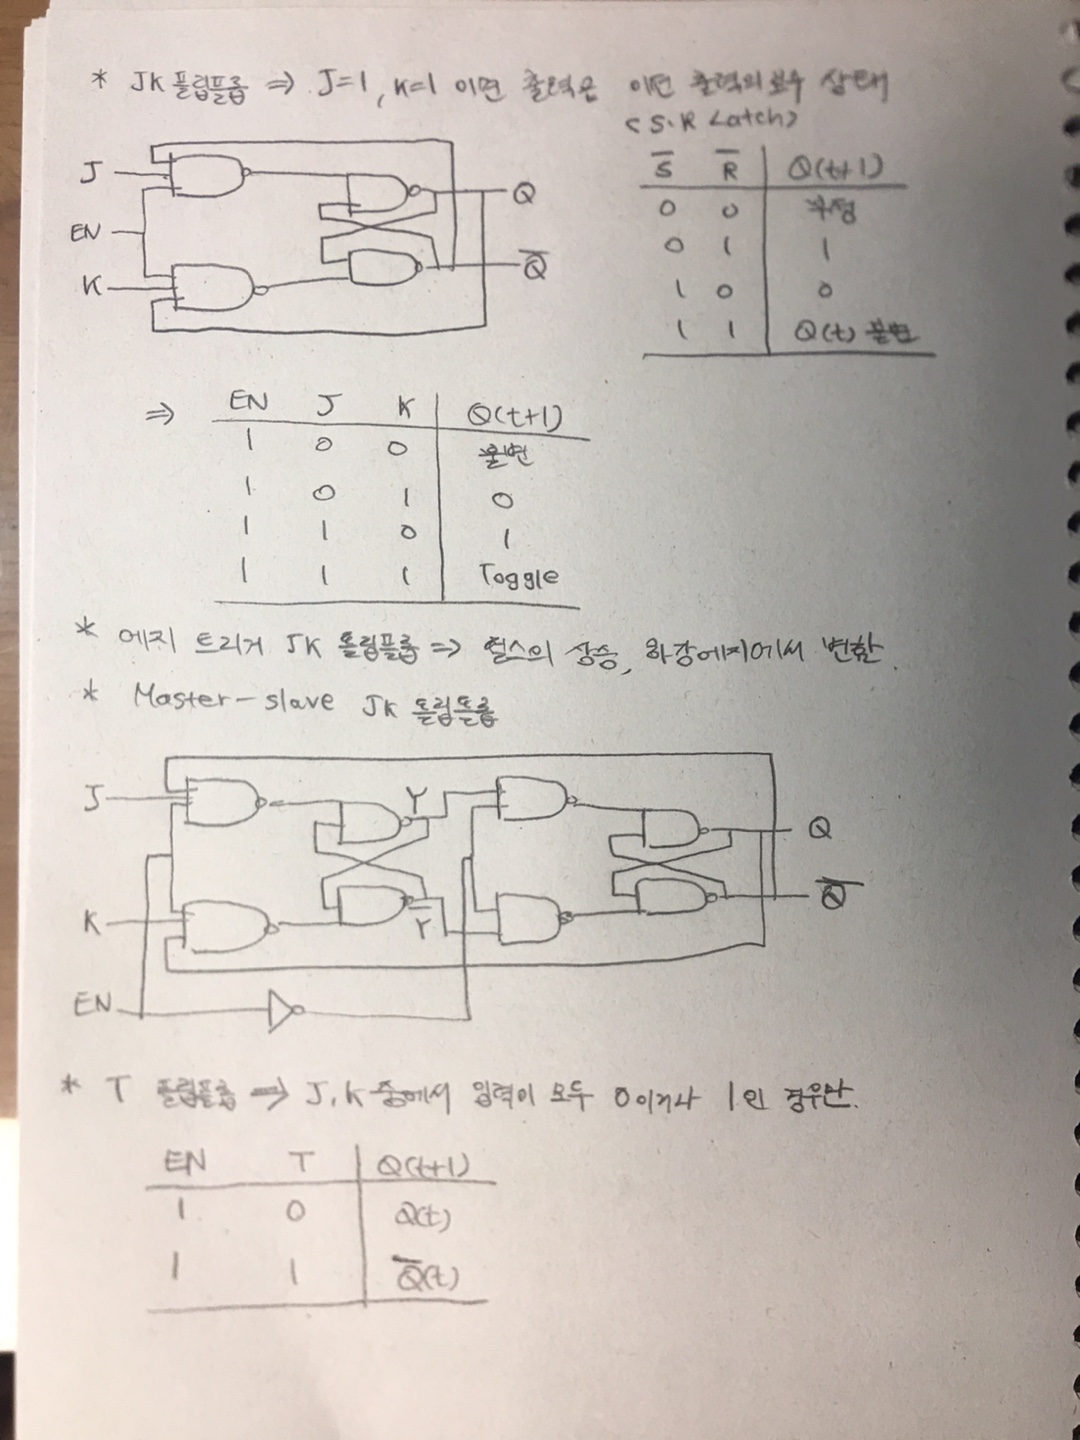 * JK 플립플롭 ⇒ J=1, K=1 이면 출력은 이전 출력의 보수 상태
<S-R Latch>
J
EN
K
Q
Q̅
S̅ R̅ Q(t+1)
0 0 부정
0 1 1
1 0 0
1 1 Q(t) 불변
⇒ EN J K Q(t+1)
1 0 0 불변
1 0 1 0
1 1 0 1
1 1 1 Toggle
* 에지 트리거 JK 플립플롭 ⇒ 펄스의 상승, 하강에지에서 변함.
* Master-slave JK 플립플롭
J
K
EN
Y
Y̅
Q
Q̅
* T 플립플롭 ⇒ J, K 중에서 입력이 모두 0이거나 1인 경우만.
EN T Q(t+1)
1 0 Q(t)
1 1 Q̅(t)